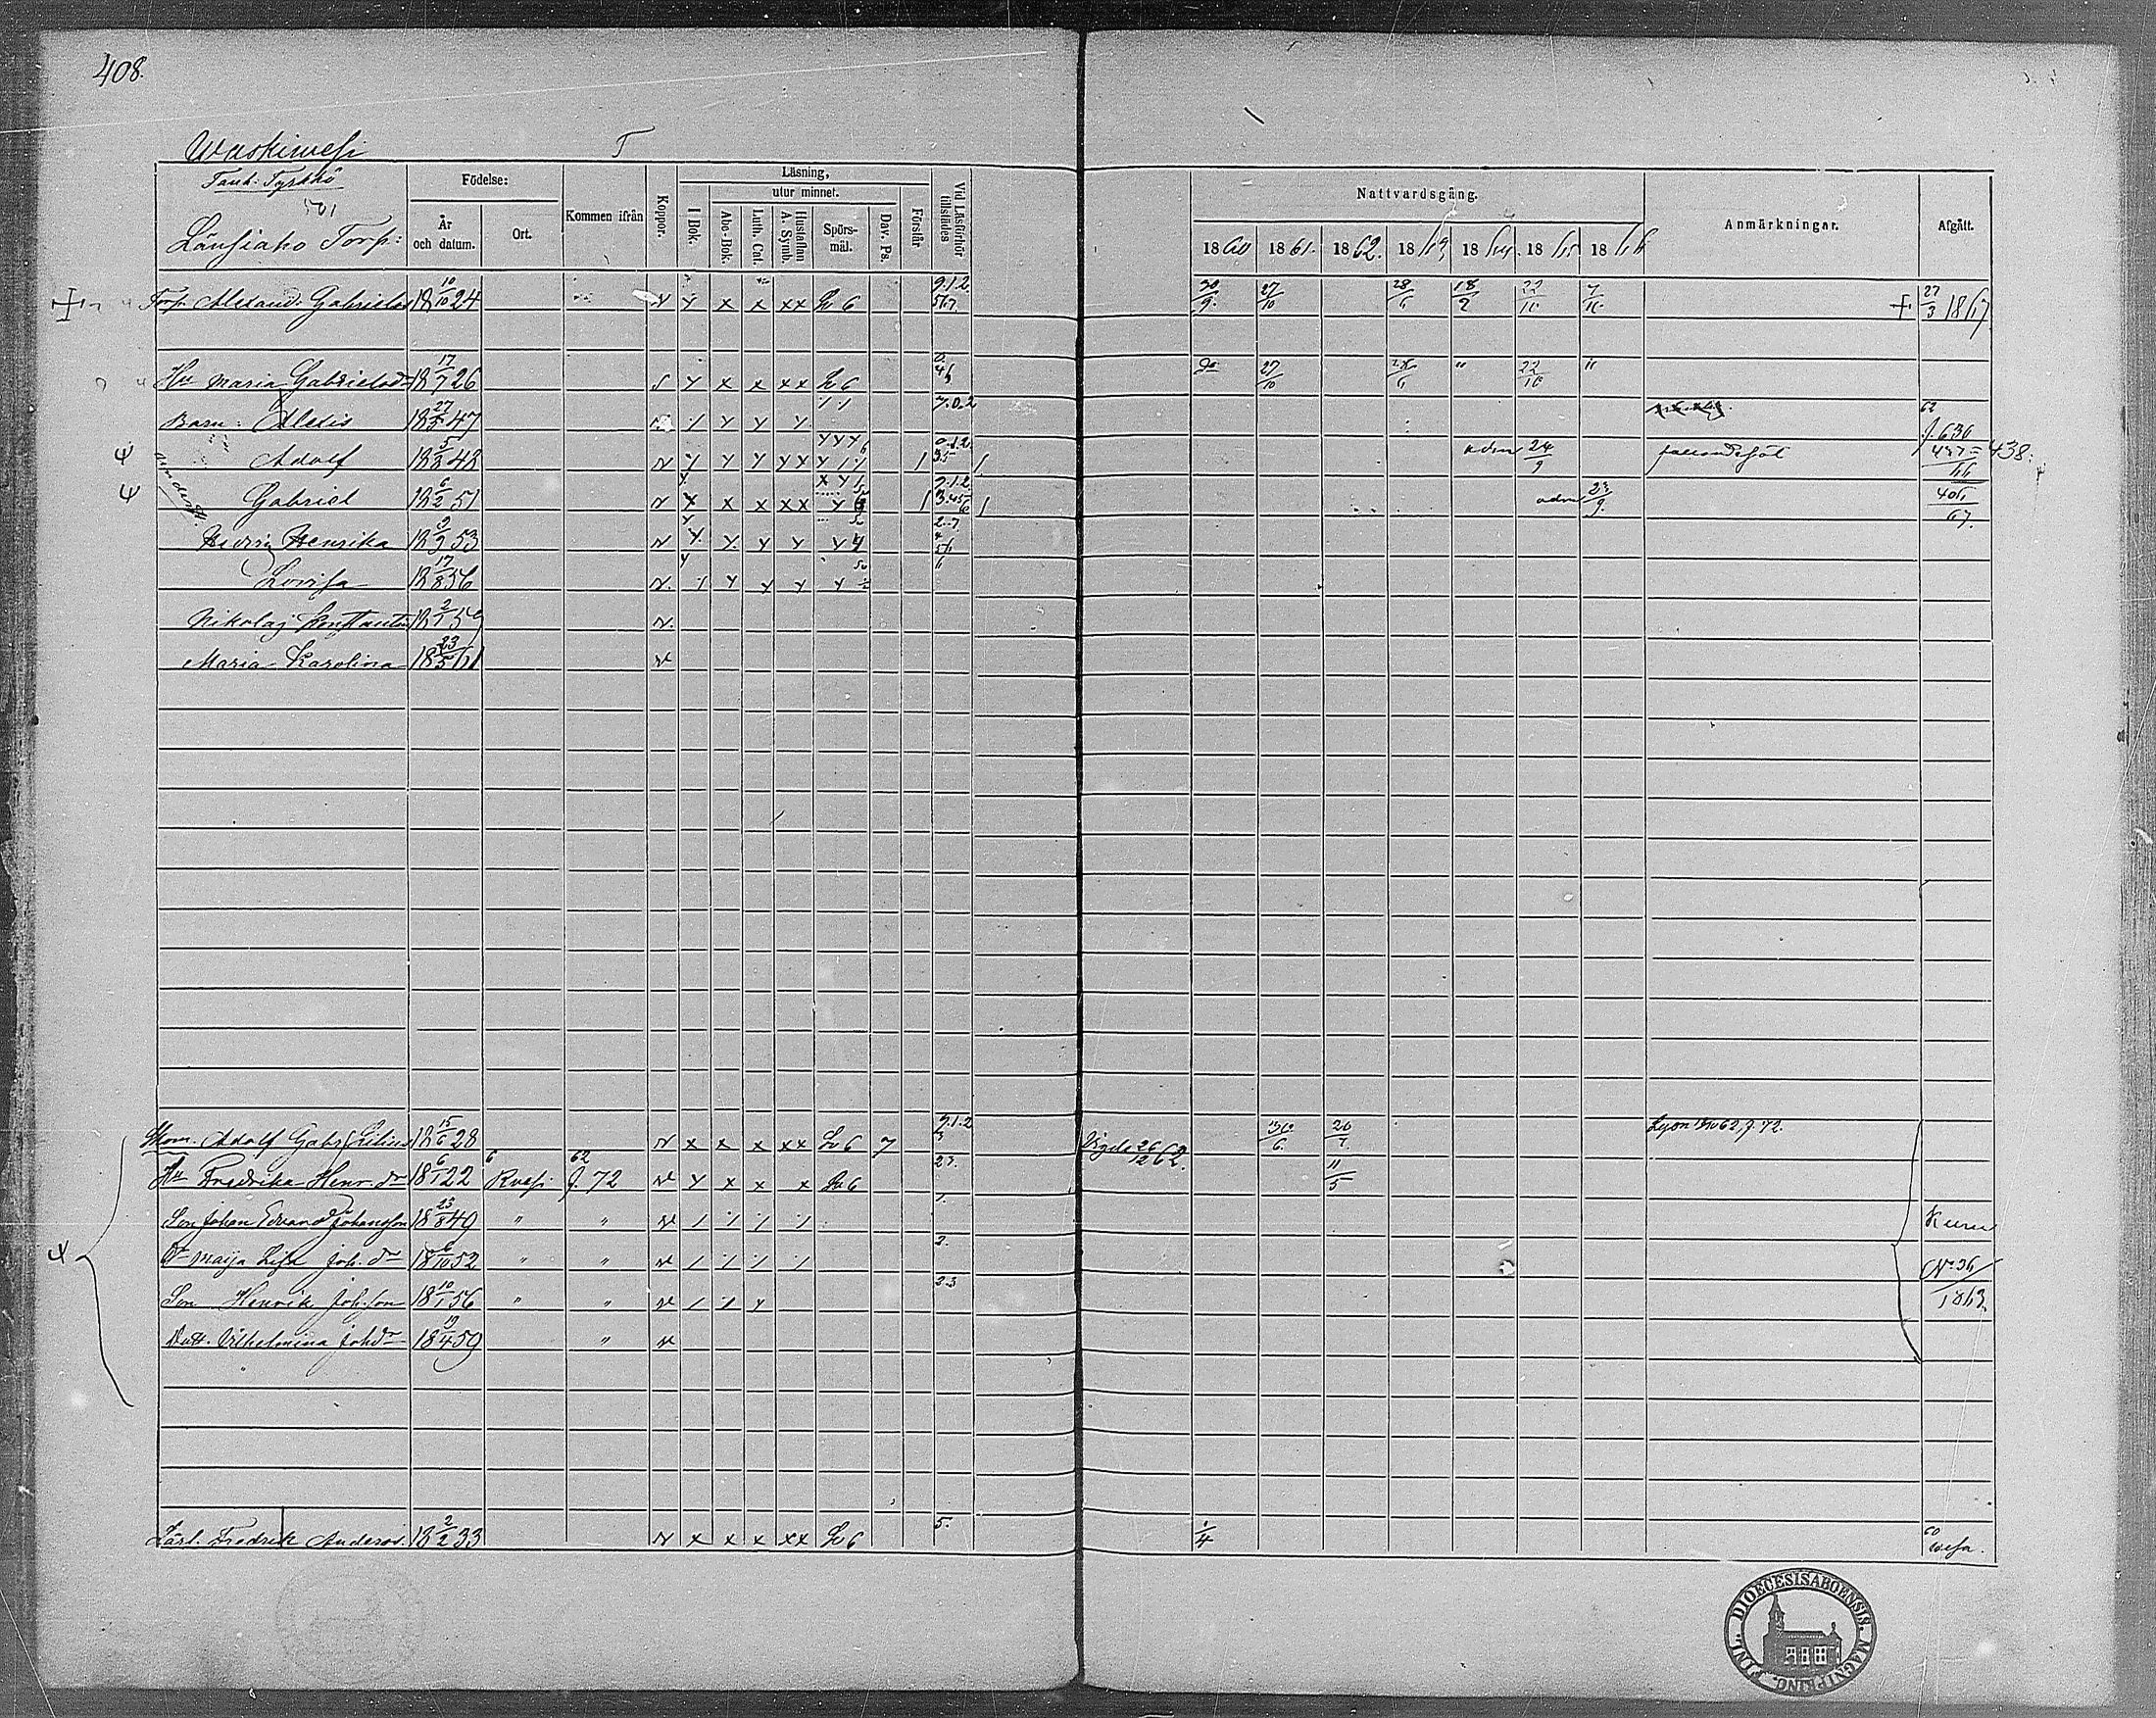 408.
Waskiwesi T
Tauk: Tyrkkö
501
Länsiaho Torp:
Födelse:
År och datum.
Ort.
Kommen ifrån
Koppor.
Läsning,
utur minnet.
I Bok.
Abc-Bok.
Luth. Cat.
Hustaflan A. Symb.
Spörsmål.
Dav. Ps.
Förstår
Vid Läsförhör tillstädes
Nattvardsgång.
1860 1861. 1862. 1863 1864. 1865 1866
Anmärkningar.
Afgått.
Torp. Alexand. Gabrielss 18 10/10 24 v y x x xx Sv 6 9.1.2 567. 30/9. 27/10 28/6 18/2 22/10. 7/10. + 27/3 1867
Hu Maria Gabrielsdr 18 17/7 26 s y x x xx Sv 6 0. 46 do 27/10 28/6 " 22/10 "
Barn: Alexis 18 27/5 47 / y y y 7.0.2 62 f. 630
Adolf 18 5/3 48 v y y y y x 0.1.2 35 adm 24/9 437=438. 66
Gabriel 18 6/2 51 v x x x xx y 6 9.1.2 3.45 6 adm 23/9. 406/67.
Hedvig Henrika 18 9/9 53 v y y y y y 4 2.7. 4 56
Lovisa 18 17/8 56 v. / y y y y 6
Nikolaj Konstantin 18 2/1 59 v.
Maria Karolina 18 23/5 61 vl
Hom. Adolf Gabrs Lilius 18 15/6 28 v x x x xx Sv 6 7 9.1.2 3 Vigde 26/12 62. 30/6. 20/7. Lysn 62, f. 72.
Hu Fredrika Henr. dr 18 6/1 22 Ruovesi 62 f. 72 vl y x x x Sv 6 23. 11/5
Son Johan Edvard Johansson 18 23/8 49 " " vl / ·/· / / 7. Kuru
Dr Maija Lisa Joh. dr 18 6/10 52 " " vl / ·/· / / 2. No 36/1863
Son Henrik Joh. son 18 10/1 56 " " vl / ·/· y 23
Dott. Vilhelmina Johdr 18 19/4 59 " vl
Lärl. Fredrik Anderss. 18 2/2 33 v x x x xx Sv 6 5. 1/4 60
FINL. DIOECESIS ABOENSIS. MAGNI PRINC.